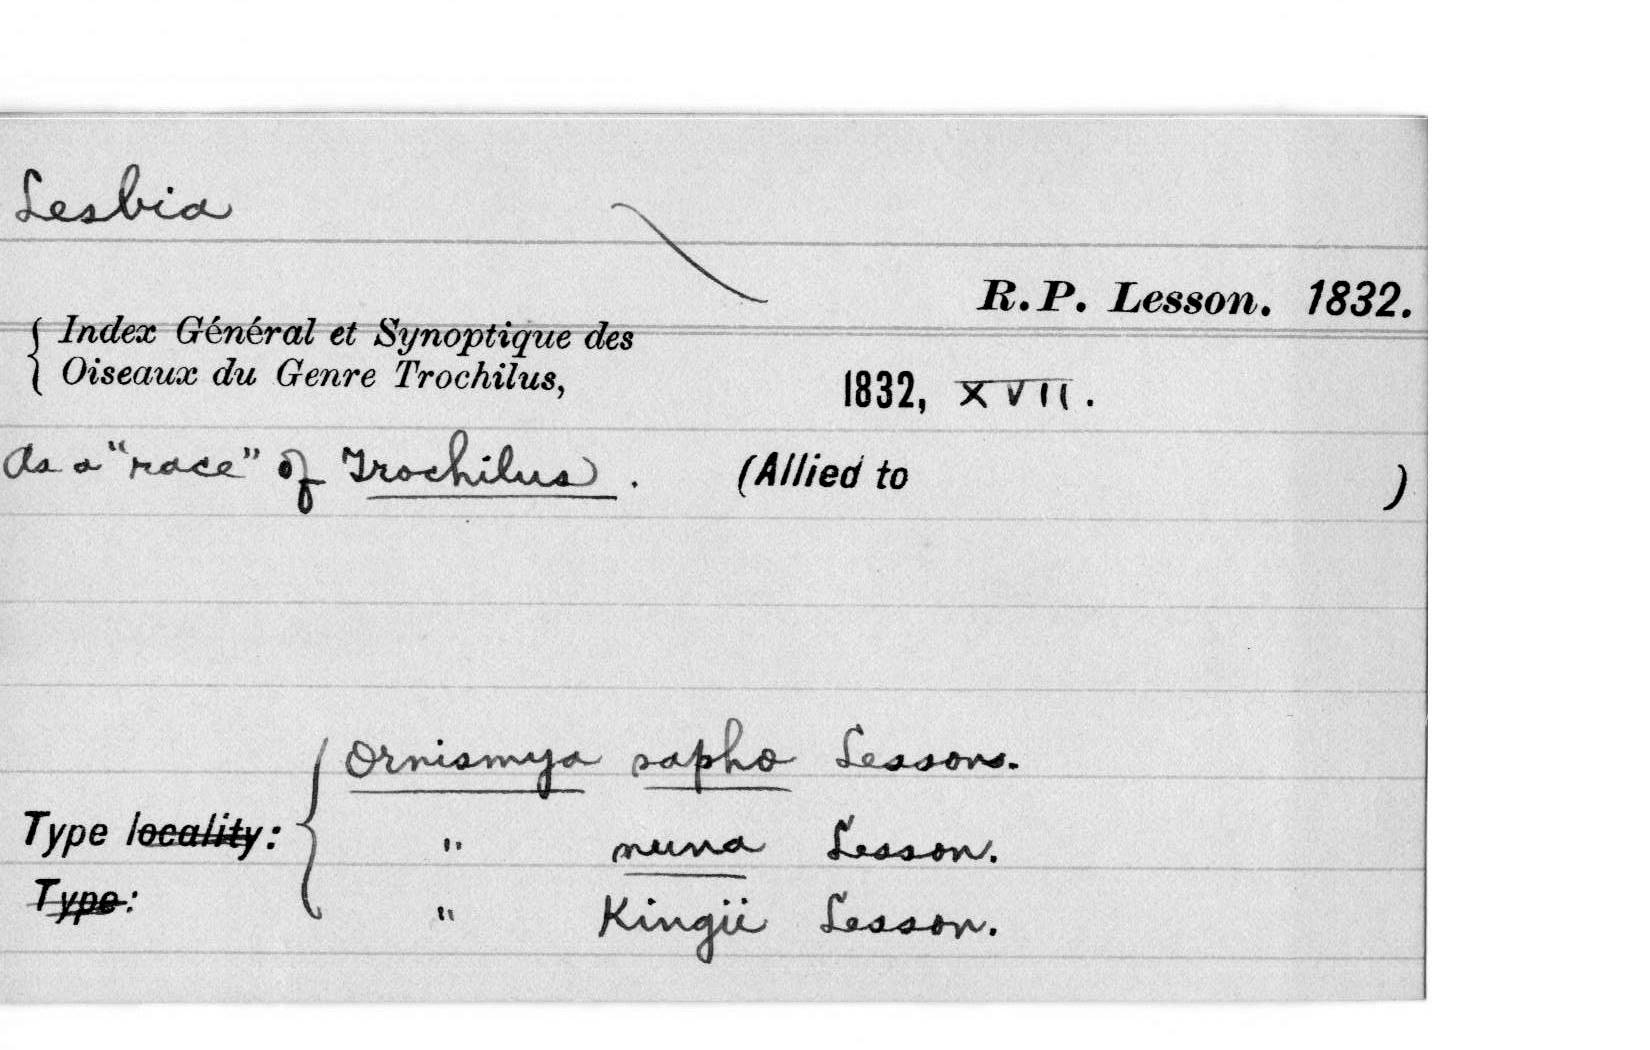 Lesbia
R.P. Lesson. 1832.
Index Général et Synoptique des
Oiseaux du Genre Trochilus,
1832, XVII.
As a "race" of Trochilus. (Allied to )
Ornismya sapho Lesson.
Type locality: " nuna Lesson.
Type: " Kingii Lesson.